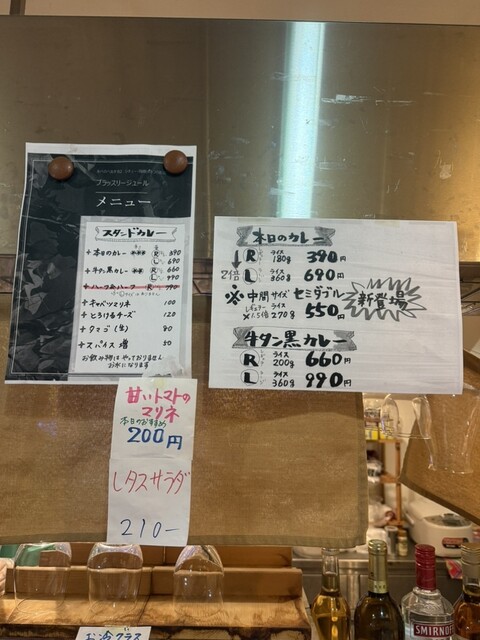 ブラッスリージュドール
メニュー
スタンドカレー
+ 本日のカレー R 390
L 690
+ 牛タン黒カレー R 660
L 990
+ ハーフ&ハーフ R 790
+ キャベツマリネ 100
+ とろけるチーズ 120
+ タマゴ(生) 80
+ スパイス増 50
お飲み物はやっておりません
お水になります
本日のカレー
R ライス 180g 390円
↓2倍 L ライス 360g 690円
※中間サイズ セミダブル 新登場
レギュラー×1.5倍 ライス 270g 550円
牛タン黒カレー
R ライス 200g 660円
L ライス 360g 990円
甘いトマトの
マリネ
本日のおすすめ
200円
レタスサラダ
210-
お冷グラス
SMIRNOFF